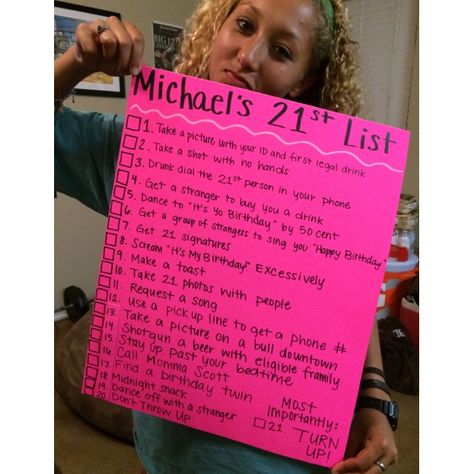 Michael's 21st List
1. Take a picture with your ID and first legal drink
2. Take a shot with no hands
3. Drunk dial the 21st person in your phone
4. Get a stranger to buy you a drink
5. Dance to "It's Yo Birthday" by 50 cent
6. Get a group of strangers to sing you "Happy Birthday"
7. Get 21 signatures
8. Scream "It's My Birthday!" EXCESSIVELY
9. Make a toast
10. Take 21 photos with people
11. Request a song
12. Use a pick up line to get a phone #
13. Take a picture on a bull downtown
14. Shotgun a beer with eligible framily
15. Stay up past your bedtime
16. Call Momma Scott
17. Find a birthday twin
18. Midnight snack
19. Dance off with a stranger
20. Don't Throw Up
Most
Importantly:
21. TURN
UP!
BIG 12